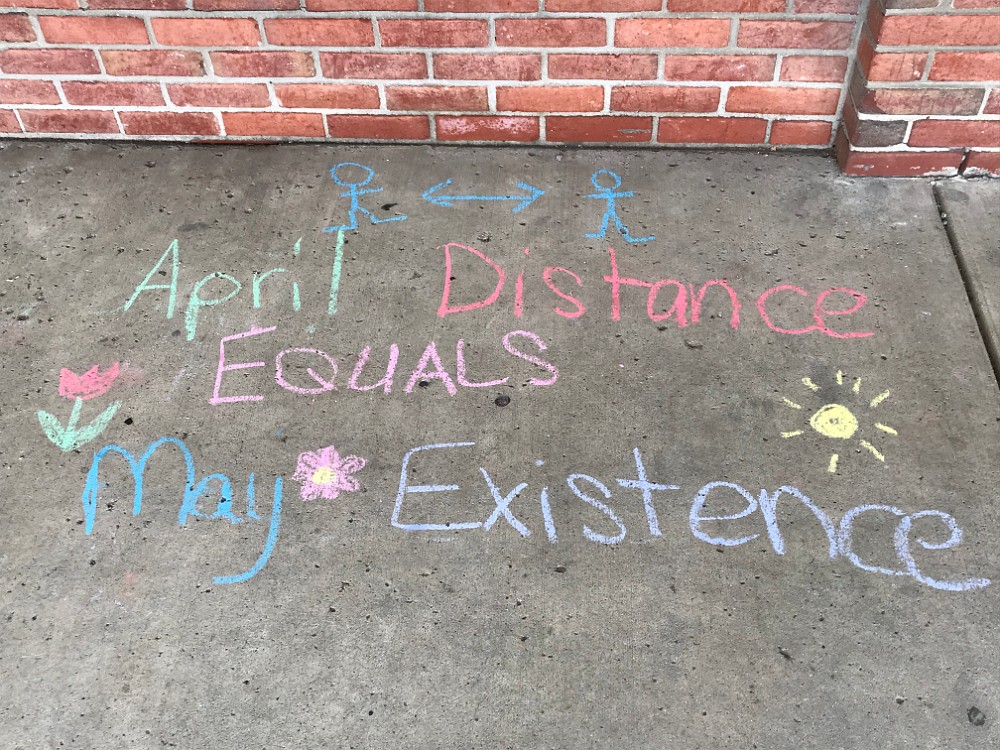 April Distance
EQUALS
May Existence